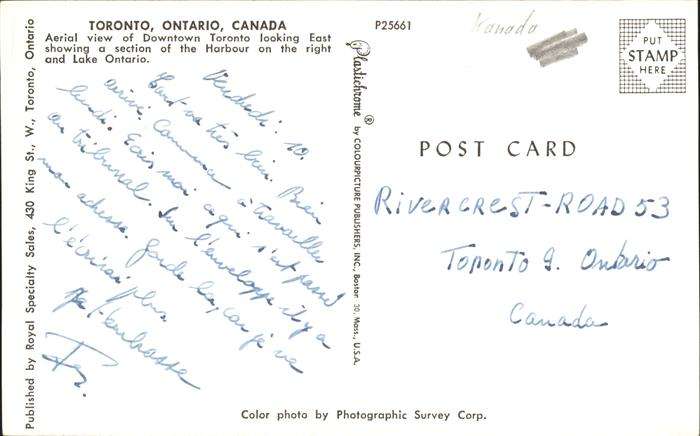 TORONTO, ONTARIO, CANADA
Aerial view of Downtown Toronto looking East
showing a section of the Harbour on the right
and Lake Ontario.
P25661
Kanada
PUT
STAMP
HERE
Vendredi. 10.
Tout va très bien. Bien
arrivé. Commence à travailler
lundi. Ecris moi ce qui s'est passé
au tribunal. Sur l'enveloppe il y a
mon adresse. Garde la, car je ne
l'écrirai plus.
Je t'embrasse
POST CARD
RIVERCREST-ROAD 53
Toronto 9. Ontario
Canada
Plastichrome ® by COLOURPICTURE PUBLISHERS, INC., Boston 30, Mass., U.S.A.
Published by Royal Specialty Sales, 430 King St., W., Toronto, Ontario
Color photo by Photographic Survey Corp.